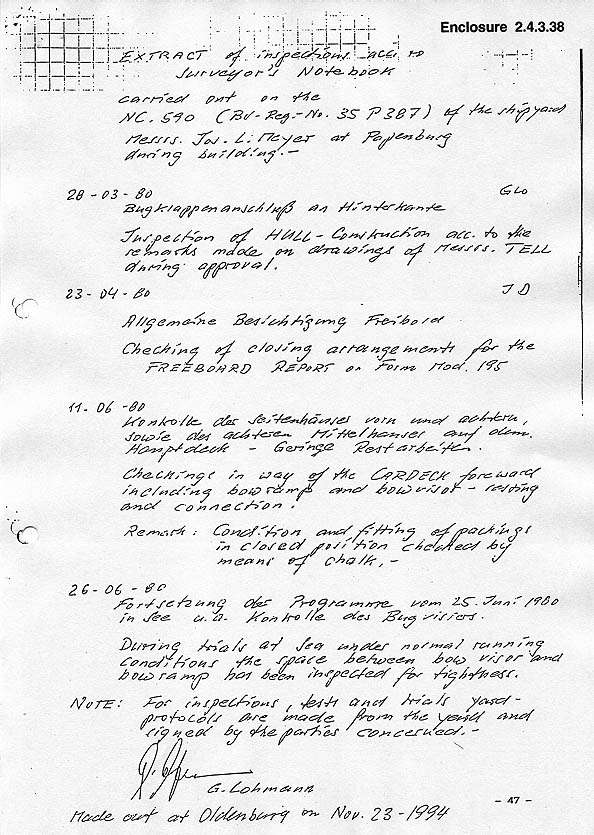 Enclosure 2.4.3.38
EXTRACT of inspections acc. to
Surveyor's Notebook
carried out on the
NC. 590 (BV-Reg.-No. 35 P 387) of the shipyard
Messrs. Jos. L. Meyer at Papenburg
during building.-
28-03-80 GLo
Bugklappenanschluß an Hinterkante
Inspection of HULL-Construction acc. to the
remarks made on drawings of Messrs. TELL
during approval.
23-04-80 JD
Allgemeine Besichtigung Freibord
Checking of closing arrangements for the
FREEBOARD REPORT on Form Mod. 195
11-06-80
Kontrolle des Seitenhauses vorn und achtern,
sowie des achteren Mittelhauses auf dem
Hauptdeck - Geringe Restarbeiten.
Checkings in way of the CARDECK foreward
including bowramp and bowvisor - resting
and connection.
Remark: Condition and fitting of packings
in closed position checked by
means of chalk.-
26-06-80
Fortsetzung des Programms vom 25. Juni 1980
in See u.a. Kontrolle des Bugvisiers.
During trials at sea under normal running
conditions the space between bow visor and
bowramp has been inspected for tightness.
NOTE: For inspections, tests and trials yard-
protocols are made from the yard and
signed by the parties concerned.-
G. Lohmann
Made out at Oldenburg on Nov. 23-1994
- 47 -